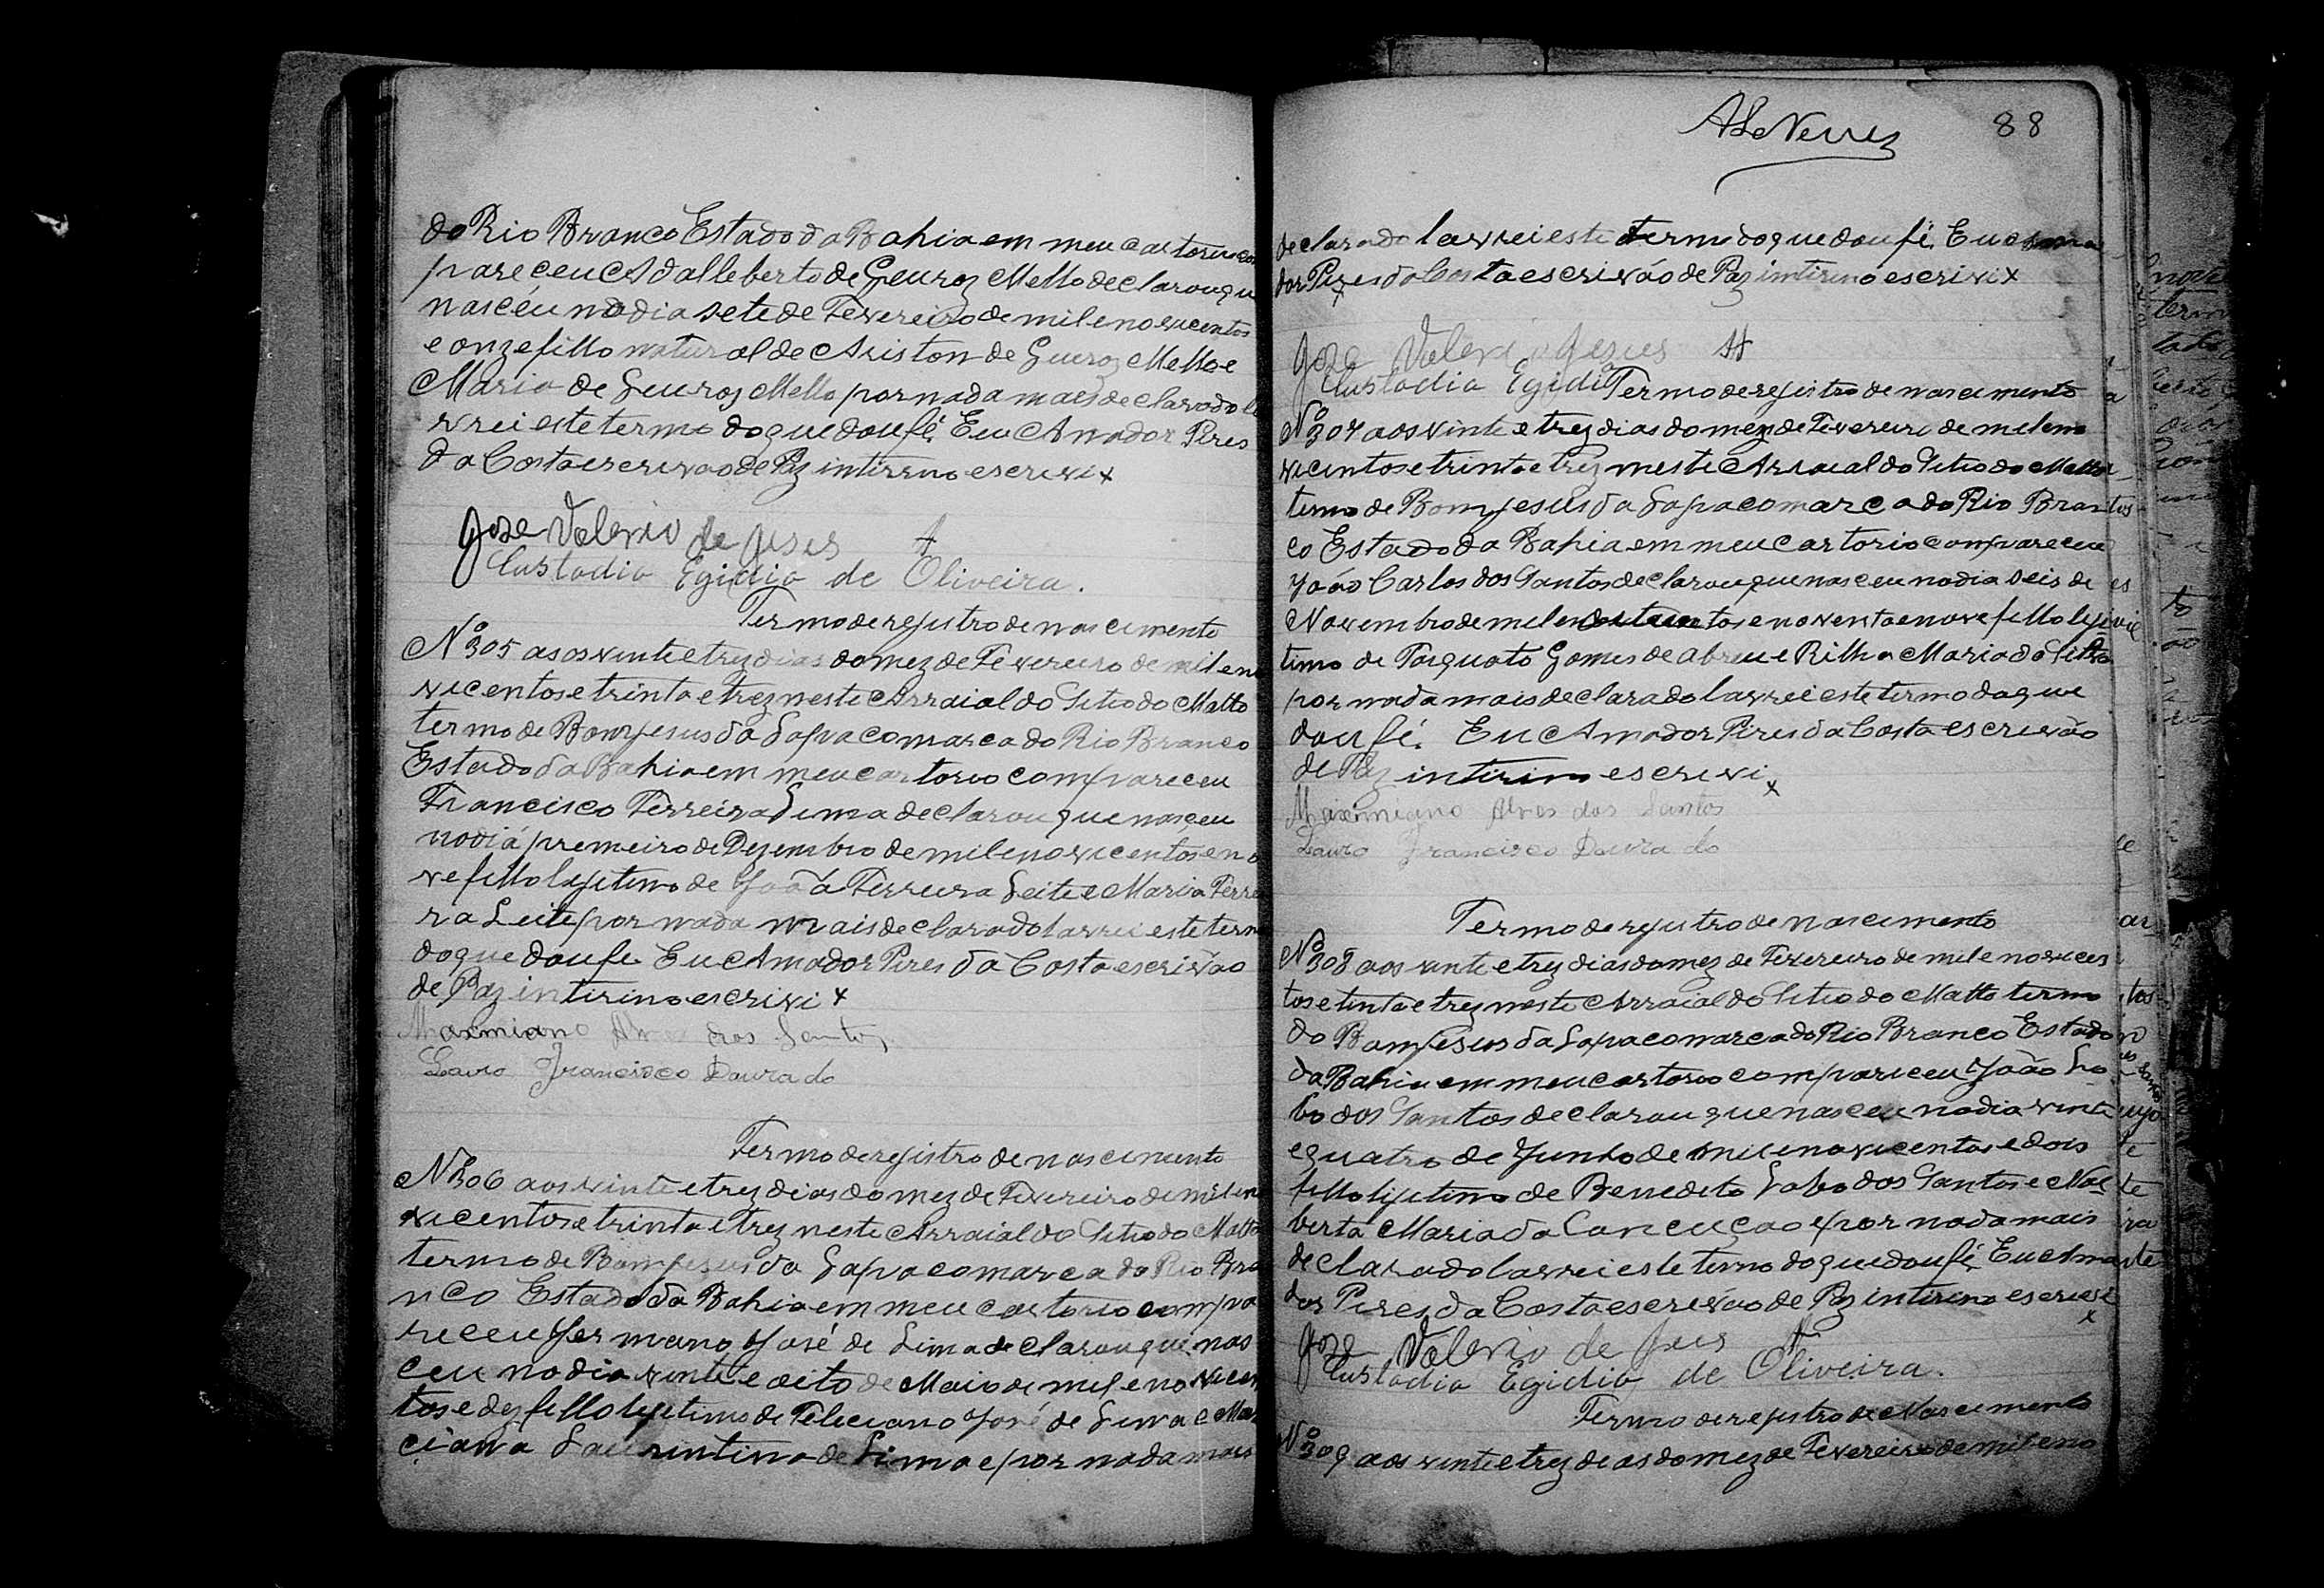 do Rio Branco Estado da Bahia em meu cartorio com
pareceu Adalleberto de Queroz Mello declarou que
nascêu no dia sete de Fevereiro de mil e novicentos
e onze fillo natural de Ariston de Queroz Mello e
Maria de Queroz Mello por nada maes declarado la
vrei este termo do que dou fé. Eu Amador Pires
da Costa escrivão de Paz intirino escrivi x
Jose Valerio de Jesus
Custodio Egidio de Oliveira.
Termo de rejistro de nascimento
Nº 305 asos vinte e trez dias do mez de Fevereiro de mil e no
vicentos e trinta e trez neste Arraial do Sitio do Matto
termo de Bomjesus da Lapa comarca do Rio Branco
Estado da Bahia em meu cartorio compareceu
Francisco Ferreira Lima declarou que nasceu
no diá premeiro de Dezembro de mil e novicentos e no
ve fillo lejetimo de João Ferreira Leite e Maria Ferre
ra Leite por nada mais declarado lavrei este term
do que dou fe. Eu Amador Pires da Costa escrivão
de Paz intirino escrivi x
Maxmiano Alves dos Santos
Lauro Francisco Dourado
Termo de rejistro de nascimento
Nº 306 aos vinte e trez dias do mez de Fevereiro de mil e no
vicentos e trinta e trez neste Arraial do Sitio do Matto
termo de Bomjesus da Lapa comarca do Rio Bra
nco Estado da Bahia em meu cartorio compa
receu Jermano José de Lima declarou que nas
ceu no dia vinte e oito de Maio de mil e novicen
tos e dez fillo lejetimo de Feleciano José de Lima e Mar
ciana Laurintina de Lima e por nada mais
88
declarado lavrei este termo do que dou fé. Eu Ama
dor Pires da Costa escrivão de Paz intirino escrivi x
Jose Valerio Jezus
Custodio Egidi Termo de rejistro de nascimento
Nº 307 aos vinte e trez dias do mez de Fevereiro de mil e no
vicentos e trinta e trez neste Arraial do Sitio do Matto
termo de Bomjesus da Lapa comarca do Rio Bran
co Estado da Bahia em meu cartorio compareceu
João Carlos dos Santos declarou que nasceu no dia seis de
Novembro de mil e oitocentos e noventa e nove fillo leje
timo de Torquato Gomes de Abreu e Rilha Maria da Silva
por nada mais declarado lavrei este termo do que
dou fé. Eu Amador Pires da Costa escrivão
de Paz intirino escrivi x
Maxmiano Alves dos Santos
Lauro Francisco Dourado
Termo de rejistro de nascimento
Nº 308 aos vinte e trez dias do mez de Fevereiro de mil e novicen
tos e tinta e trez neste Arraial do Sitio do Matto termo
do Bomjesus da Lapa comarca do Rio Branco Estado
da Bahia em meu cartorio compareceu João Lo
bo dos Santos declarou que nasceu no dia vinte
e quatro de Junho de mil e novicentos e dois
fillo lijetimo de Benedito Lobo dos Santos e Nor
berta Maria da Conceição e por nada mais
declarado lavrei este termo do que dou fé. Eu Ama
dor Pires da Costa escrivão de Paz intirino escrivi
x
Jose Valerio de Jesus
Custodio Egidio de Oliveira.
Termo de rejistro de Nascimento
Nº 309 aos vinte e trez dias do mez de Fevereiro de mil e no